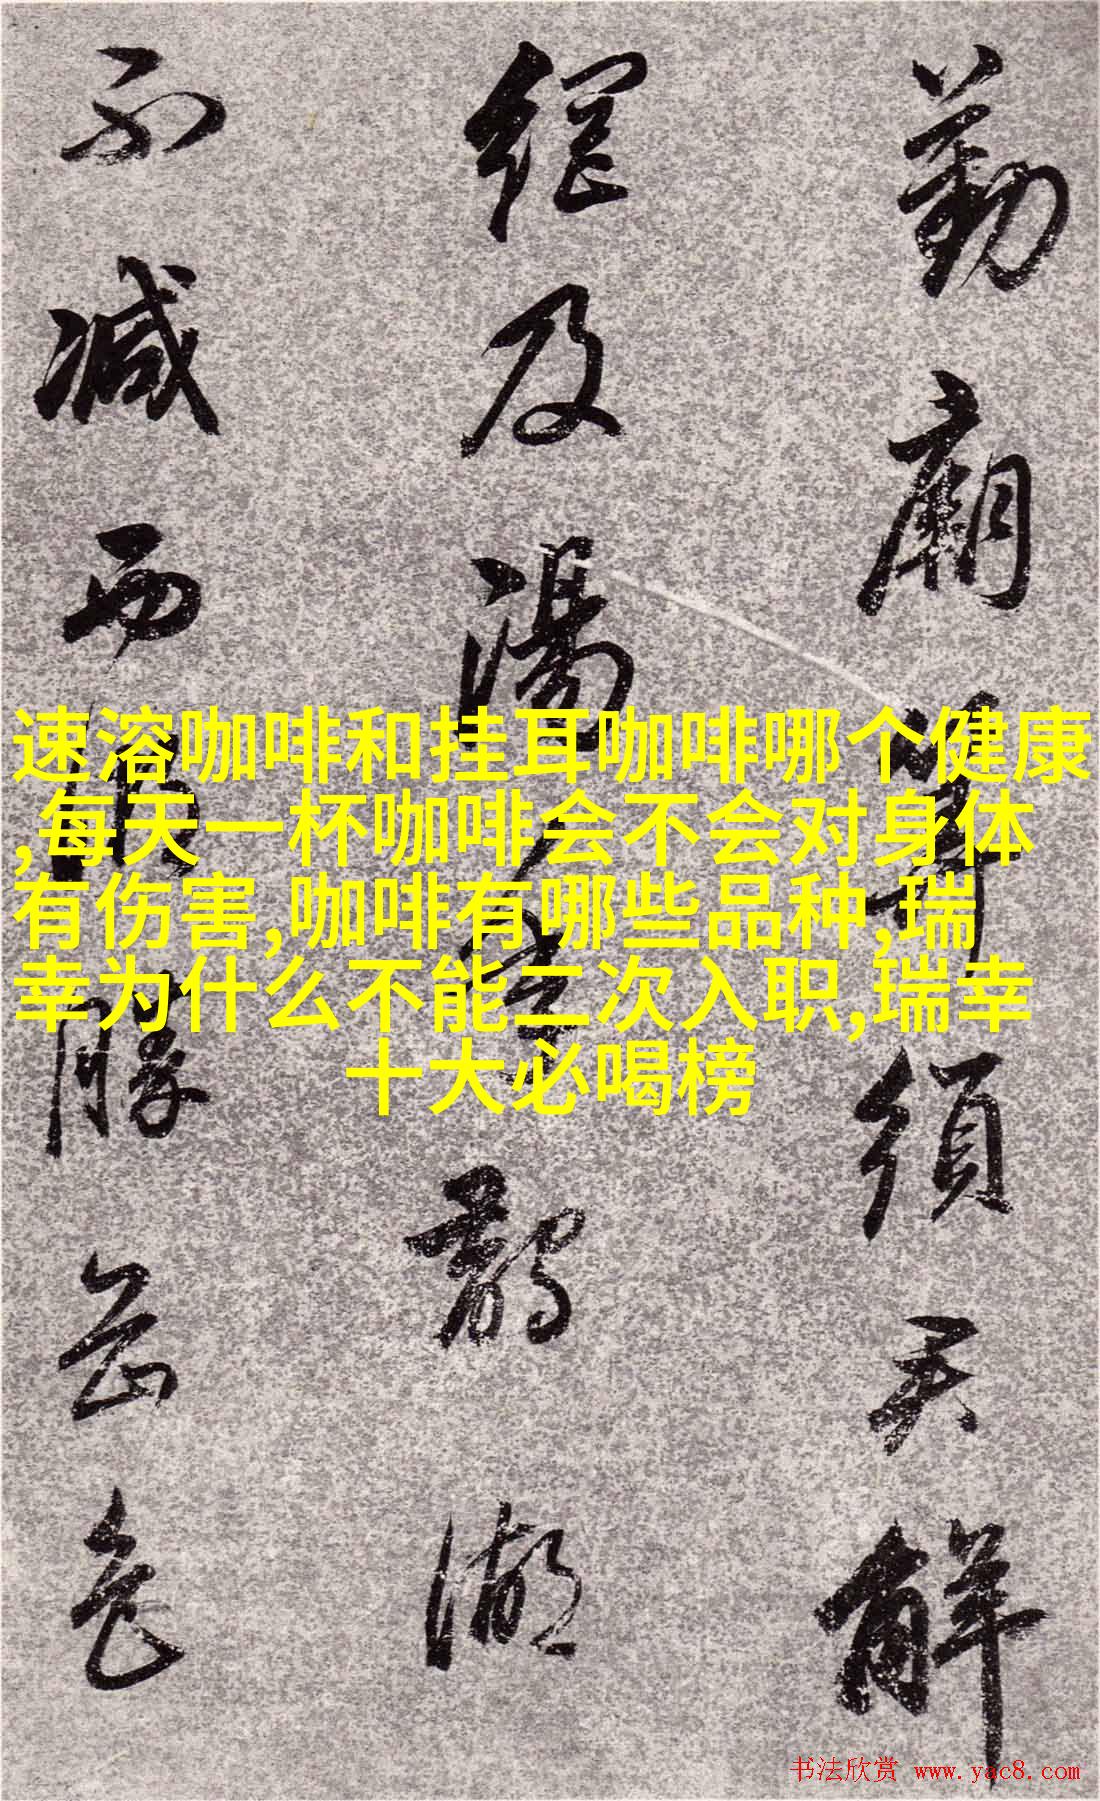 廟算須君解
網及湯鵲湖
不減西湖勝色
速溶咖啡和挂耳咖啡哪个健康
,每天一杯咖啡会不会对身体
有伤害,咖啡有哪些品种,瑞
幸为什么不能二次入职,瑞幸
十大必喝榜
书法欣赏 www.yac8.com